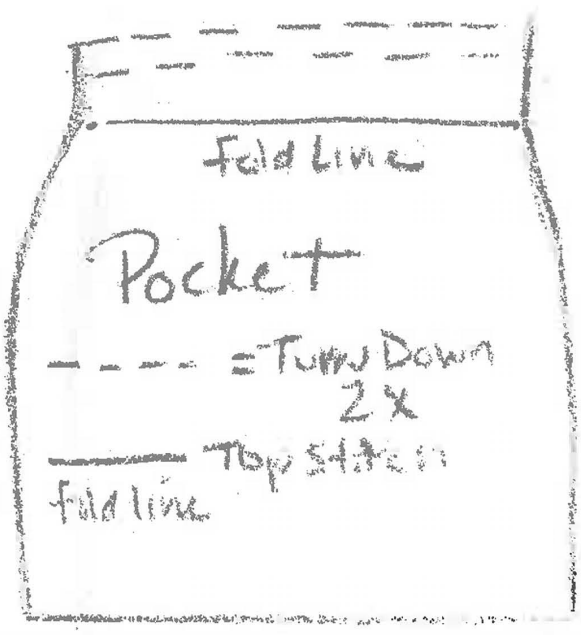 fold Line
Pocket
= Turn Down
2x
Top Stitch
fold line